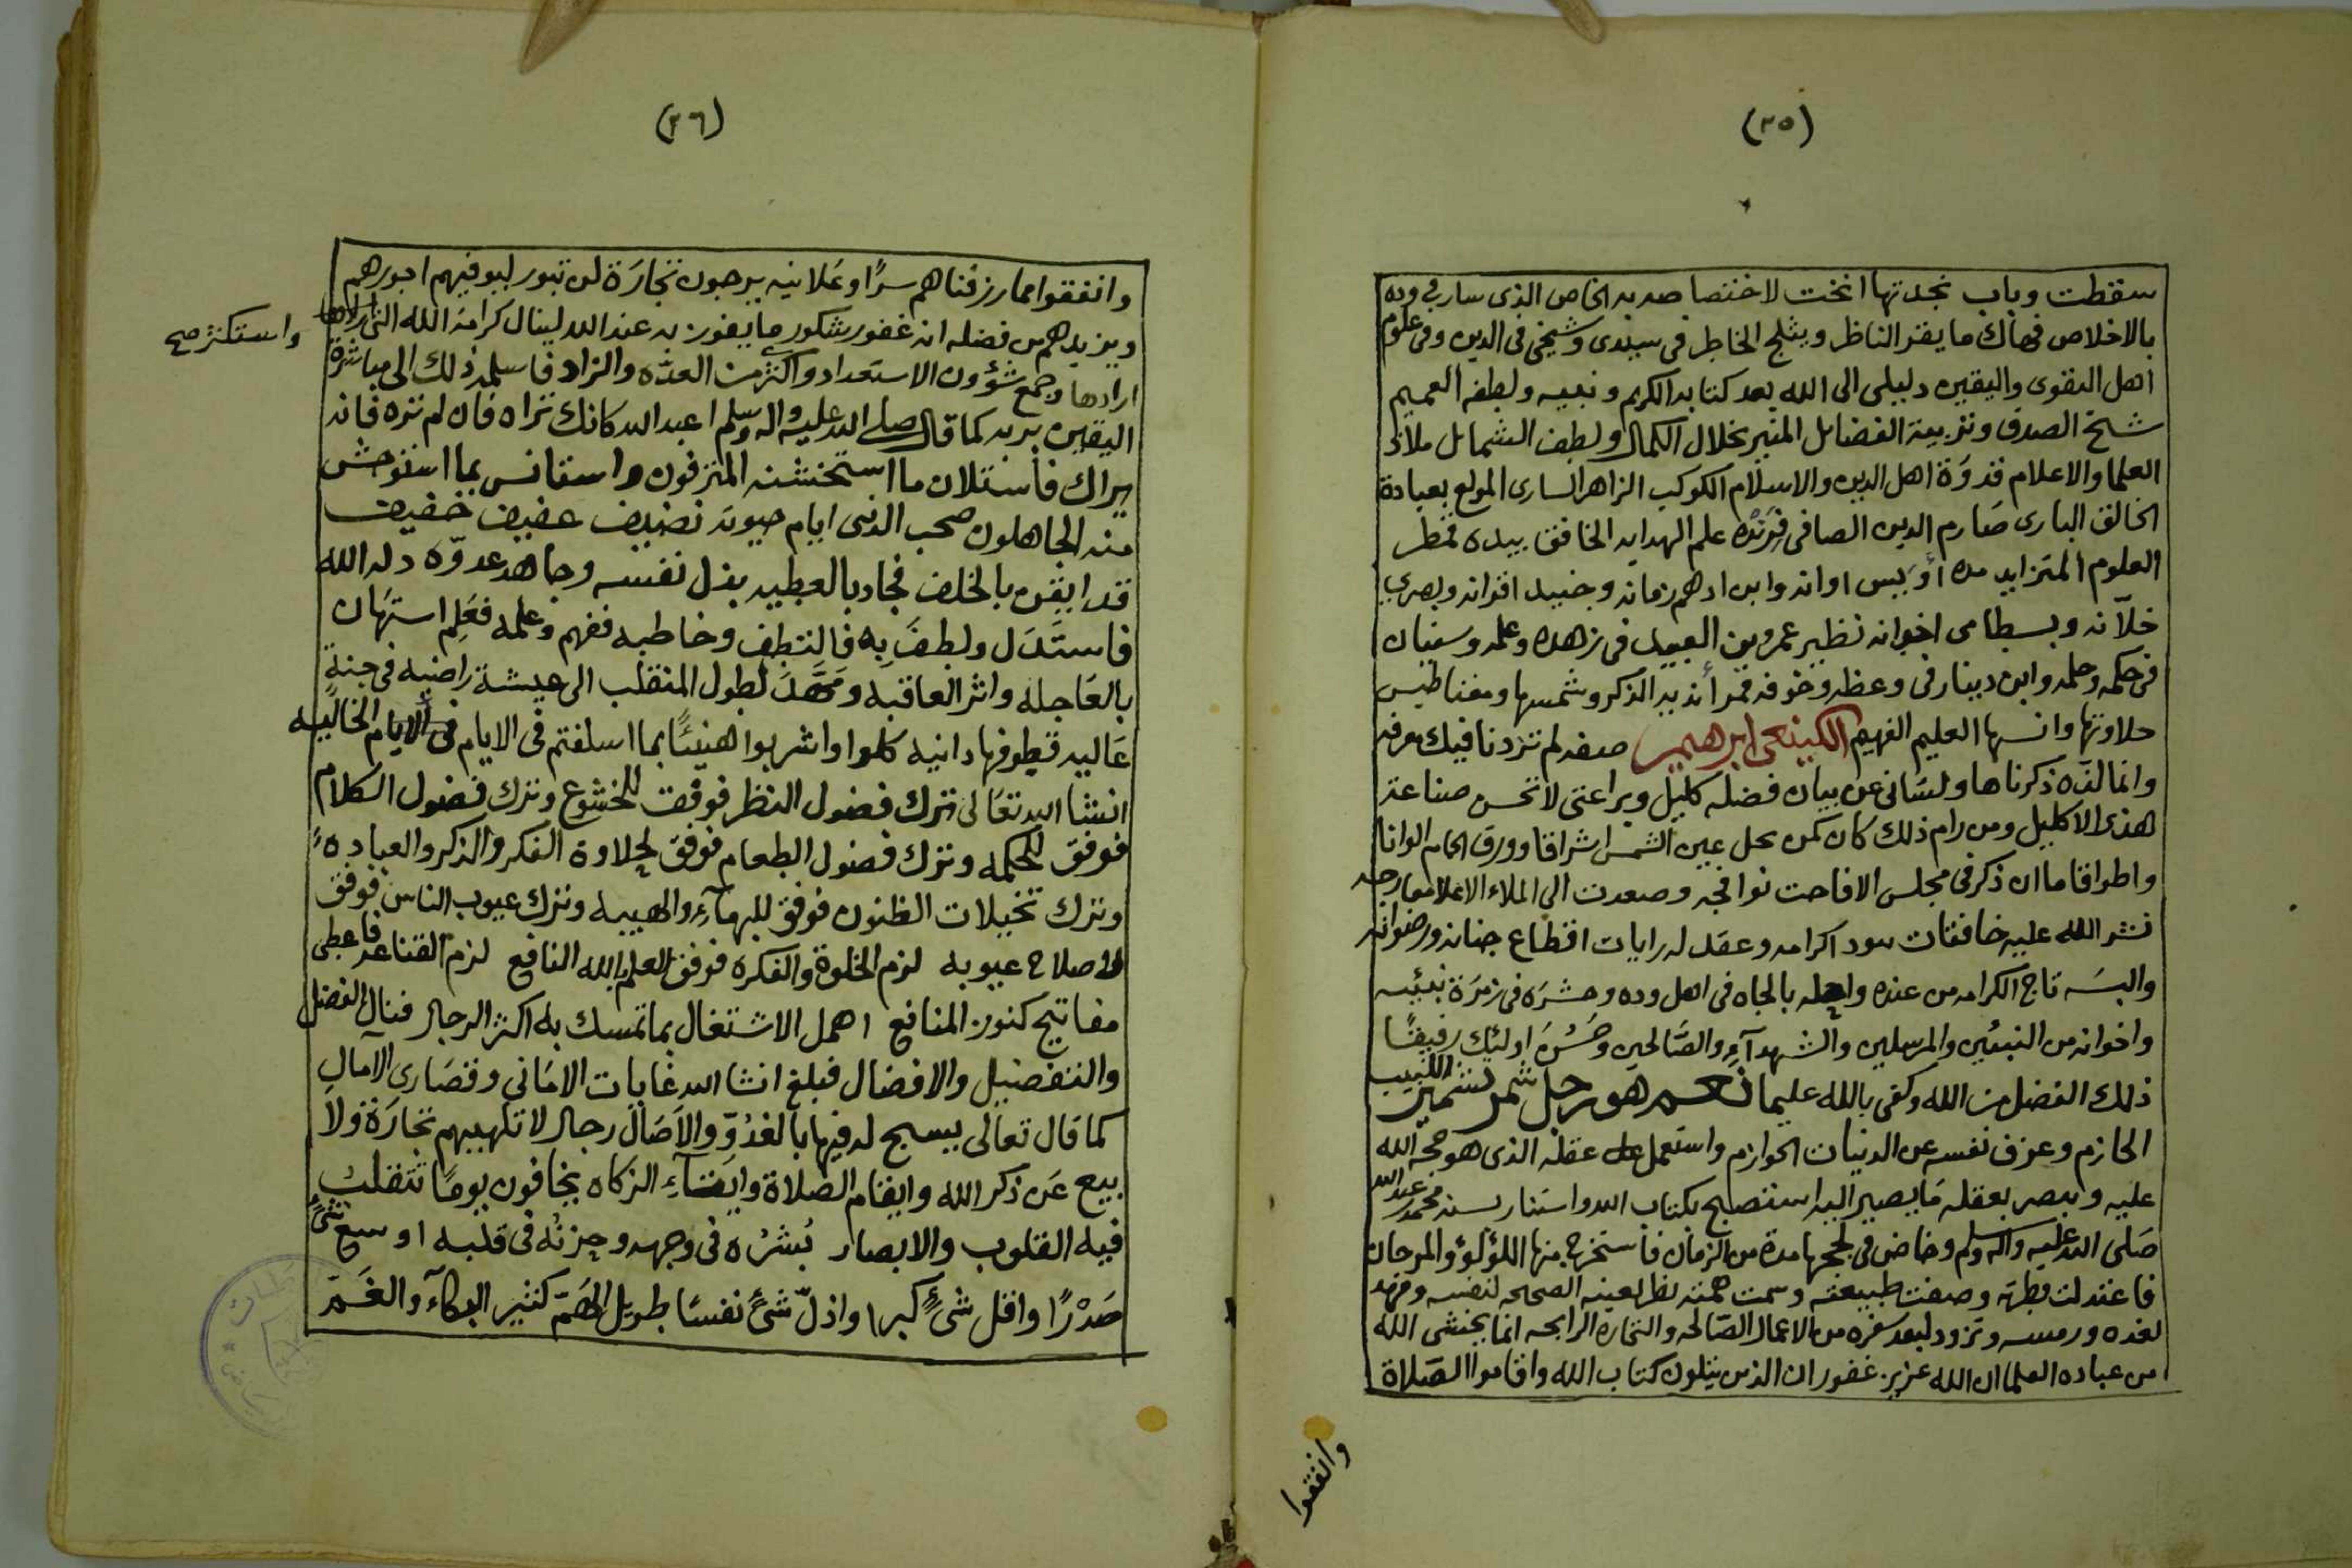 (٢٥)
سقطت وباب نجدتها انخت لاختصاصه به الخاص الذى سار في وده
بالاخلاص فهاك ما يقر الناظر ويثلج الخاطر فى سيدى وشيخى فى الدين وفى علوم
اهل التقوى واليقين دليلى الى الله بعد كتابه الكريم ونبيه ولطفه العميم
شيخ الصدق وتربية الفضائل المنير بخلال الكمال ولطف الشمائل ملاذ
العلما والاعلام قدوَة اهل الدين والاسلام الكوكب الزاهر السارى المولع بعبادة
الخالق البارى صَارم الدين الصافى فِرِنْدُه علم الهدايه الخافق بيده قمطر
العلوم المتزايد مده أوَيس اوانه وابن ادهم زمانه وجنيد اقرانه وبصري
خلّانه وبسطامى اخوانه نظير عمرو بن العبيد فى زهده وعلمه وسفيان
فى حكمه وحلمه وابن دينار فى وعظه وخوفه قمر أندية الذكر وشمسها ومغناطيس
حلاوتها وانسها العليم الفهيم الكينعى ابرهيم صفه لم تزدنا فيك معرفه
وانما لذه ذكرناها ولسَانى عن بيان فضله كليل وبراعتى لا تحسن صناعة
هذا الاكليل ومن رام ذلك كان كمن نحل عين الشمس اشراقا وورق الحمام الوانا
واطواقا ما ان ذكر فى مجلس الا فاحت نوافجه وصعدت الى الملاء الاعلا معارجه
نشر الله عليه خافقات سود اكرامه وعقد له رايات اقطاع جنانه ورضوانه
والبسَه تاج الكرامه من عنده واحله بالجاه فى اهل وده وحشرَه فى زمرَة نبيّه
واخوانه من النبيّين والمرسلين والشهدآءِ والصّالحين وحَسُنَ اولئِك رفيقًا
ذلك الفضل من الله وكفى بالله عليما نعم هو رجل شمر تشمير اللبيب
الحازم وعزف نفسه عن الدنيات الحوازم واستعمل عقله الذى هو حجّة الله
عليه وابصر بعقله مَا يصير اليه استصبح بكتاب الله واستنار بسنة محمد بن عبد الله
صَلى الله عليه وآله وسلم وخاض فى لججها مدة من الزمان فاستخرج منها اللؤلؤ والمرجان
فاعتدلت فطرته وصفت طبيعته وسمت همّته نظر بعينه الصحيحه لنفسه ومهد
لغده ورمسه وتزود لبعد سفره من الاعمال الصّالحه والتجاره الرابحه انما يخشى الله
من عباده العلما ان الله عزيز غفور ان الذين يتلون كتاب الله واقاموا الصَلاة
وانفقوا
(٢٦)
وانفقوا مما رزقناهم سرًا وعَلانيه يرجون تجارَة لن تبور ليوفيهم اجورهم
ويزيدهم من فضله انه غفور شكور ما يفوز به عند الله لينال كرامة الله التى لاهلها
ارادها وجمع شؤون الاستعداد واكثر من العدّه والزاد فاسلمه ذلك الى مباشرة
واستكثر صح
اليقين بربه كما قال صلى الله عليه واله وسلم اعبد الله كانك تراه فان لم تره فانه
يراك فاستلان ما استخشنه المترفون واستانس بما استوحش
منه الجاهلون صحب الدنى ايام حيوته نضيف عفيف خفيف
قد ايقن بالخلف فجاد بالعطيه بذل نفسه وجاهد عدوّه دله الله
فاستَدَل ولطفَ بِه فالتطف وخاطبه ففهم وعلمه فعَلِم استهَان
بالعَاجله واثر العاقبه ومَهَّدَ لطول المنقلب الى عيشة راضيه فى جنةٍ
عَاليه قطوفها دانيه كلوا واشربوا هنيئًا بما اسلفتم فى الايام الخاليه
انشا الله تعَالى ترك فضول النظر فوفق للخشوع وترك فضول الكلام
فوفق للحكمه وترك فضول الطعام فوفق لحلاوة الفكر والذكر والعباده
وترك تخيلات الظنون فوفق للبهآءِ والهيبه وترك عيوب الناس فوفق
لاصلاح عيوبه لزم الخلوة والفكره فوفق للعلم بالله النافع لزم القناعه فاعطى
مفاتيح كنوز المنافع اهمل الاشتغال بما تمسك به اكثر الرجال فنال الفضل
والتفضيل والافضال فبلغ انشا الله غايات الامَانى وقصَارى الآمالِ
كما قال تعالى يسبح له فيها بالغدُوّ والآصَال رجال لا تلهيهم تجارَة ولَا
بيع عَن ذكر الله وايقام الصَلاة وايتآءِ الزكاه يخافون يومًا تتقلبُ
فيه القلوب والابصار بُشرُه فى وجهه وحزنُه فى قلبه اوسع شئٍ
صَدْرًا واقل شئٍ كبرا واذلّ شئٍ نفسًا طويل الهَمّ كثير البكآء والغَمّ